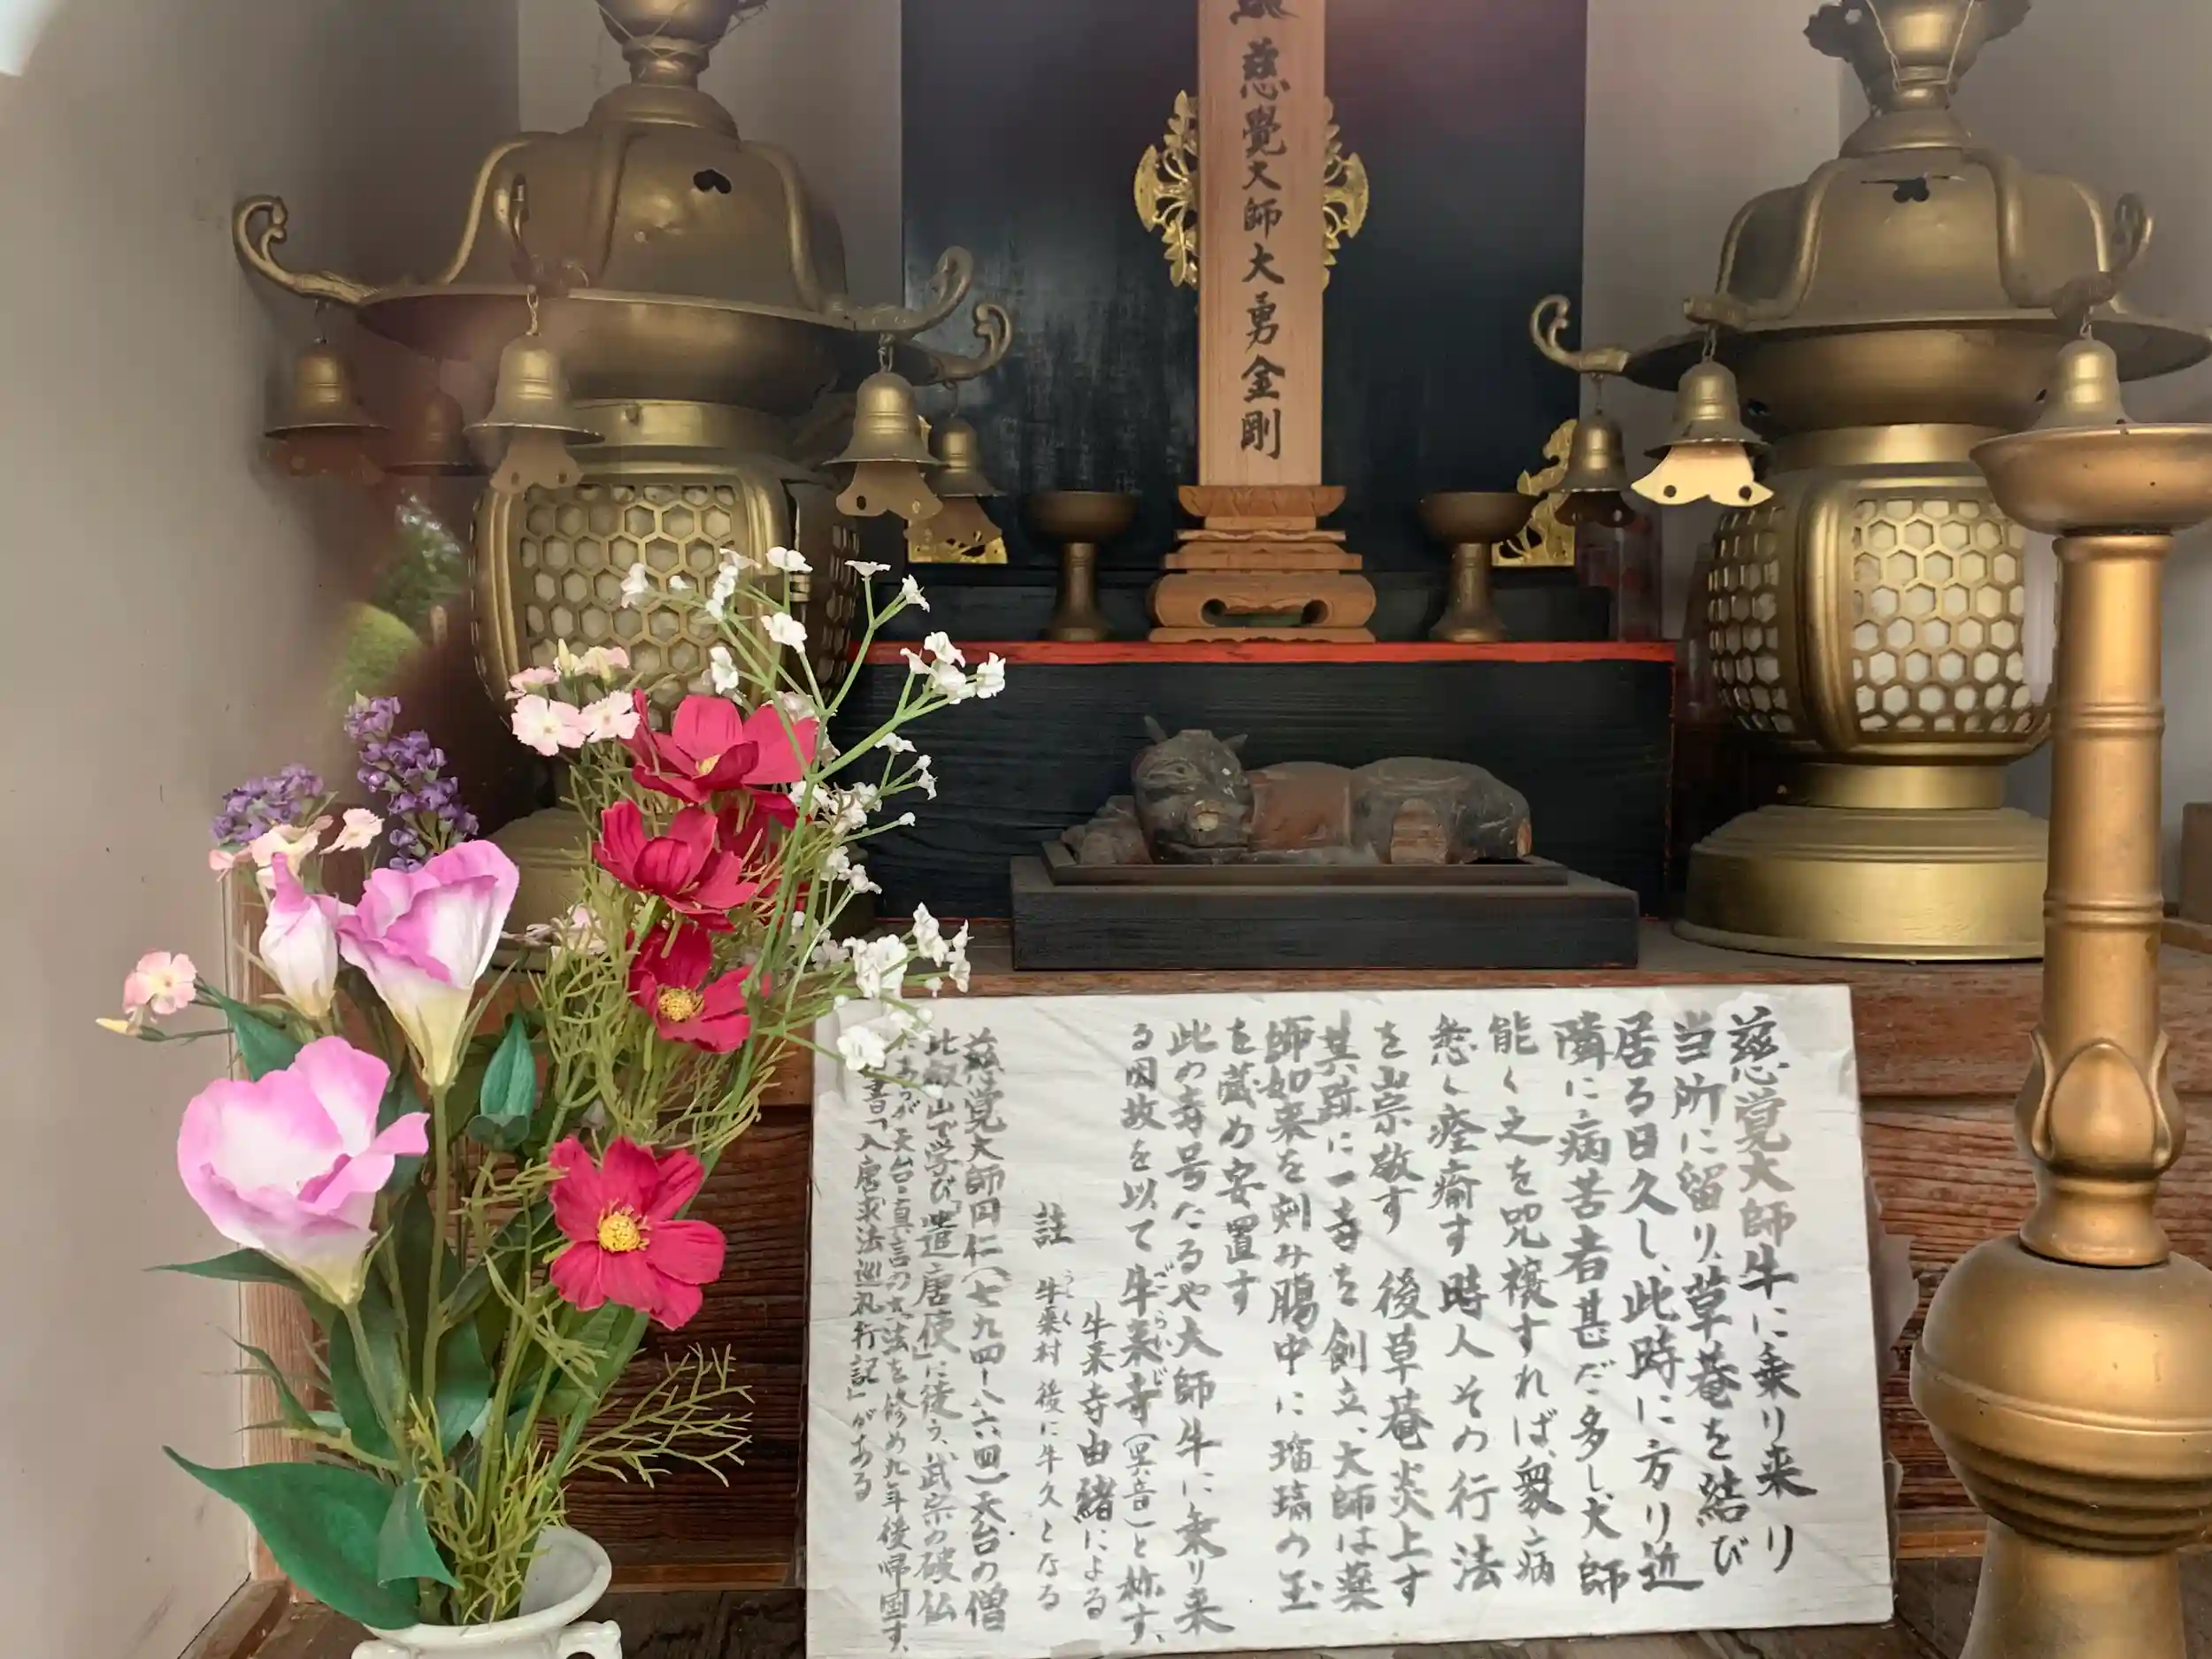 慈覺大師大勇金剛
慈覚大師牛に乗り来り
当所に留り草菴を結び
居る日久し、此時に方り近
隣に病苦者甚だ多し、大師
能く之を咒禳すれば、衆病
悉く痊癒す時人その行法
を崇敬す 後草菴炎上す
其跡に一寺を創立、大師は薬
師如来を刻み腸中に瑠璃の玉
を蔵め安置す
此の寺号たるや大師牛に乗り来
る因故を以て牛来寺(異音)と称す、
ごらいじ
牛来寺由緒による
註 牛来村 後に牛久となる
うしく
慈覚大師円仁(七九四-八六四)天台の僧
比叡山で学び「遣唐使」に従う、武宗の破仏
天台・真言の大法を修め九年後帰国す、
書「入唐求法巡礼行記」がある